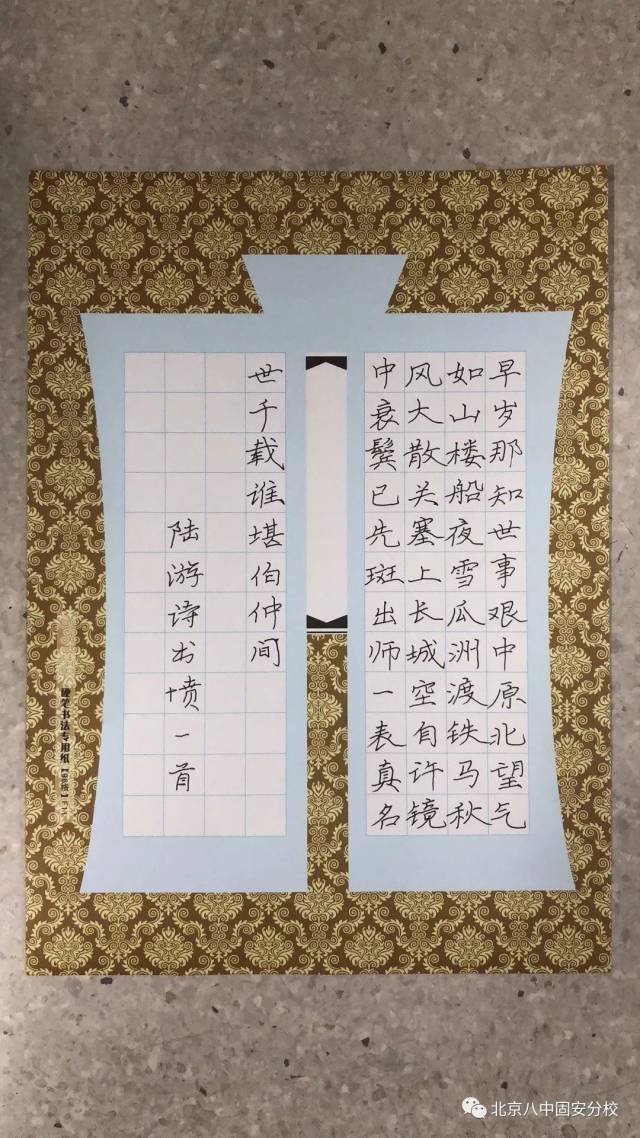 早岁那知世事艰中原北望气
如山楼船夜雪瓜洲渡铁马秋
风大散关塞上长城空自许镜
中衰鬓已先斑出师一表真名
世千载谁堪伯仲间
陆游诗书愤一首
硬笔书法专用纸
北京八中固安分校